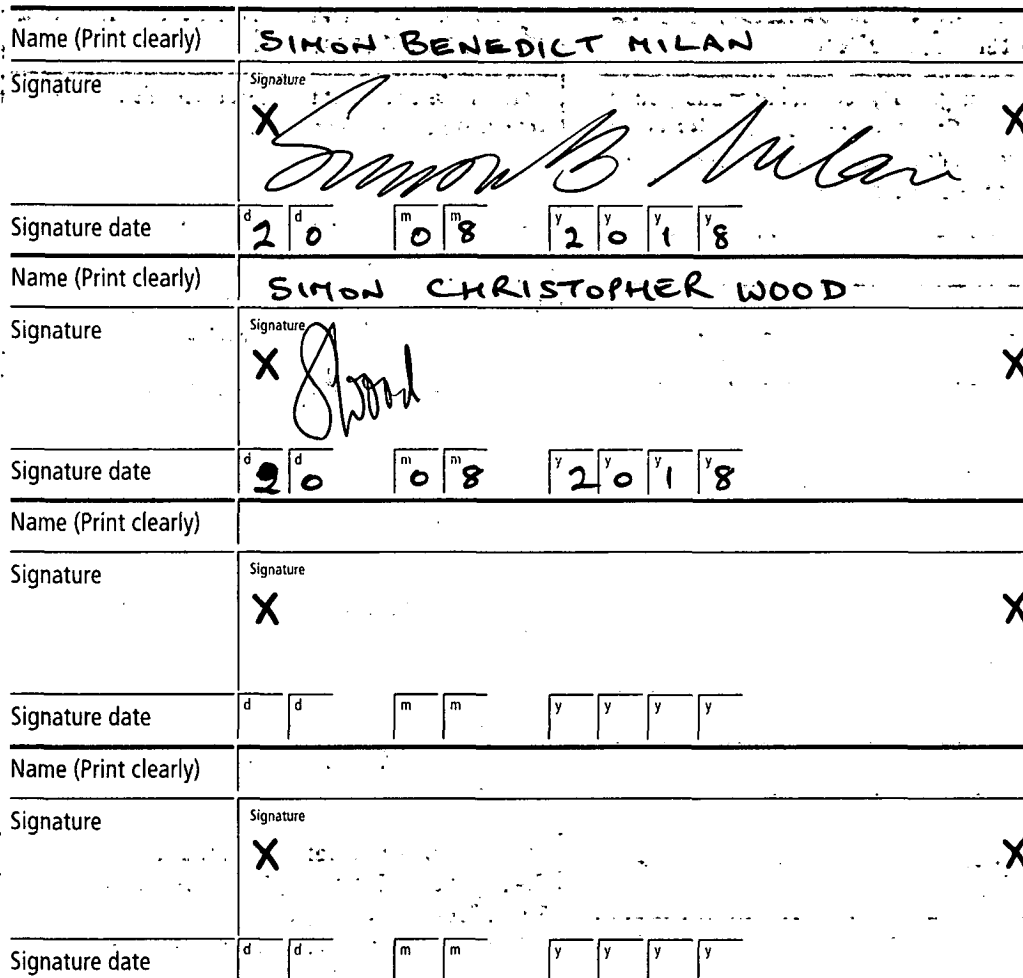 Name (Print clearly) SIMON BENEDICT MILAN
Signature Signature
X Simon B Milan X
Signature date d 2 d 0 m 0 m 8 y 2 y 0 y 1 y 8
Name (Print clearly) SIMON CHRISTOPHER WOOD
Signature Signature
X SWood X
Signature date d 2 d 0 m 0 m 8 y 2 y 0 y 1 y 8
Name (Print clearly)
Signature Signature
X X
Signature date d d m m y y y y
Name (Print clearly)
Signature Signature
X X
Signature date d d m m y y y y